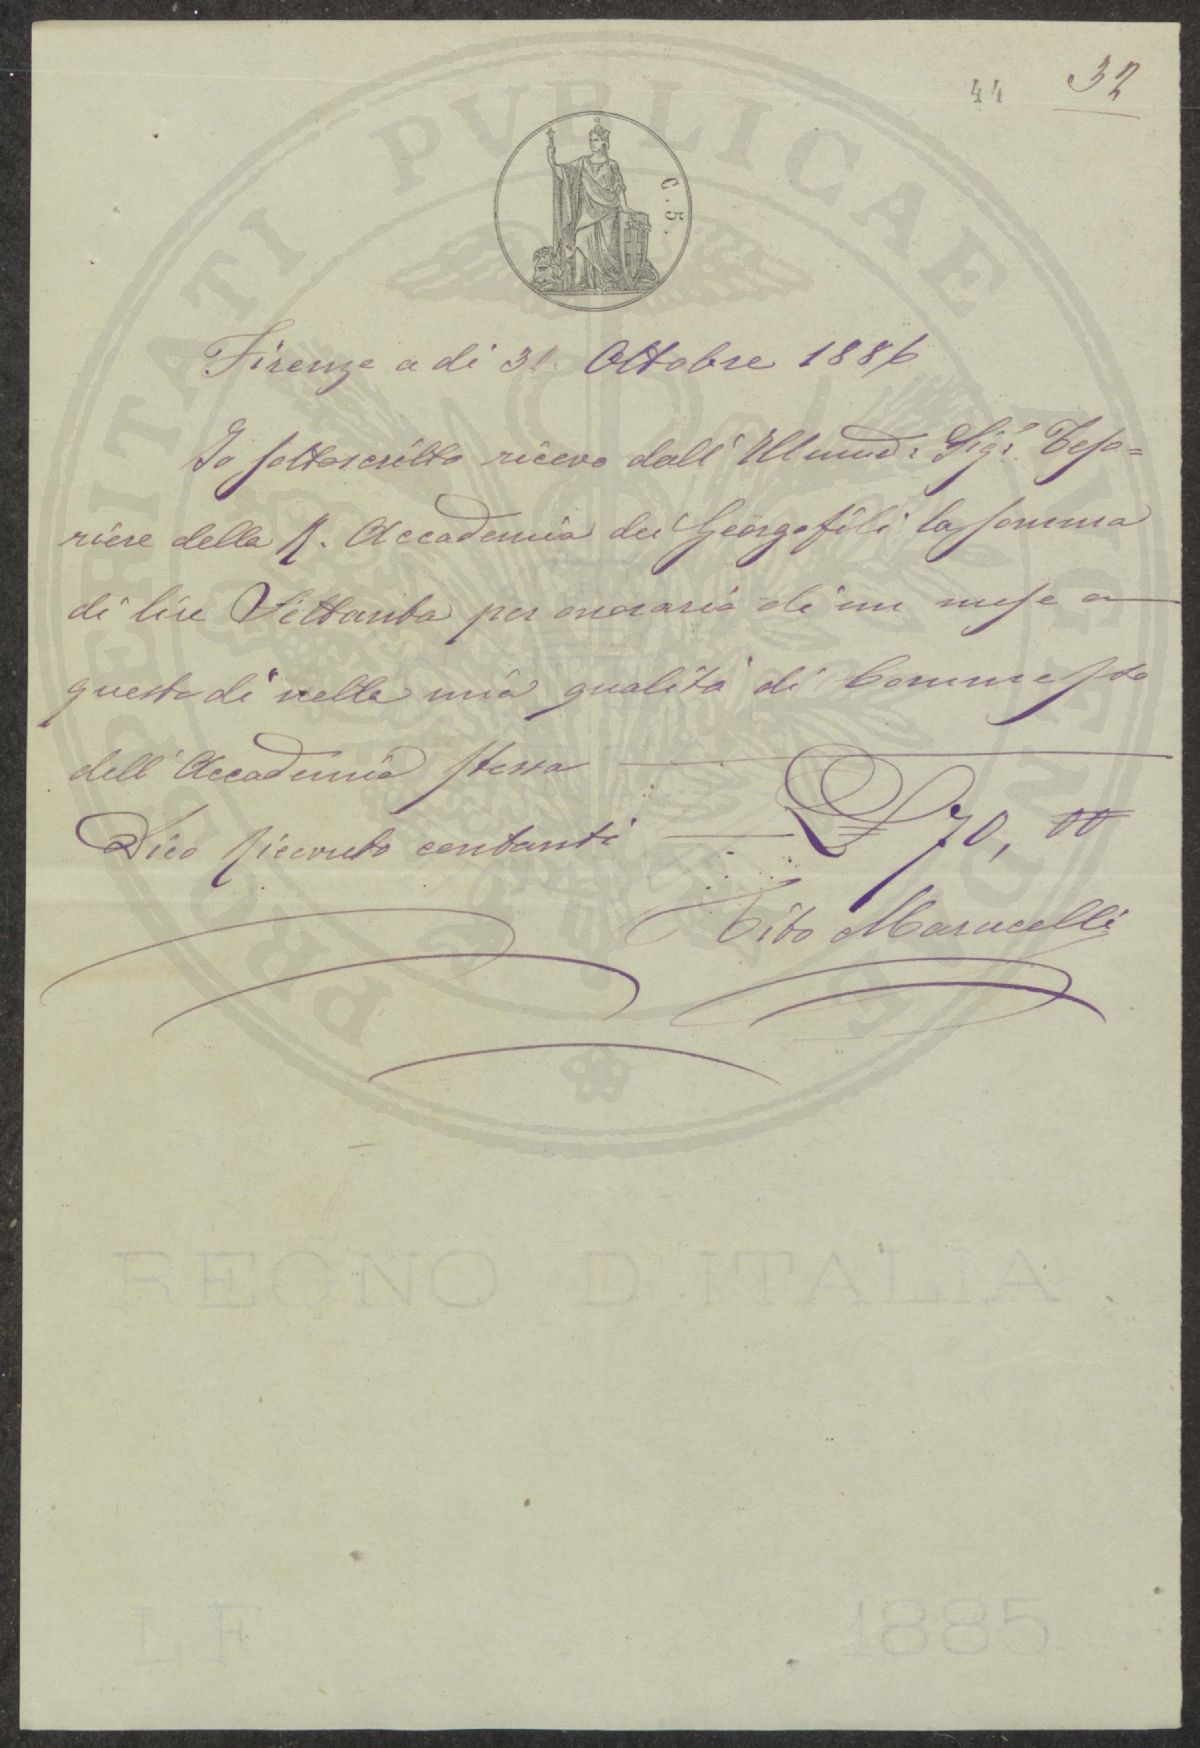 44 32
PROSPERITATI PVBLICAE AVGENDAE
C. 5.
Firenze a di 31. Ottobre 1886
Io sottoscritto ricevo dall' Illmo Sigr. Teso=
riere della R. Accademia dei Georgofili la somma
di lire Settanta per onorario di un mese a
questo dì nella mia qualità di Commesso
dell' Accademia stessa
Dico ricevuto contanti L 70, 00
Tito Marucelli
REGNO D'ITALIA
LF 1885